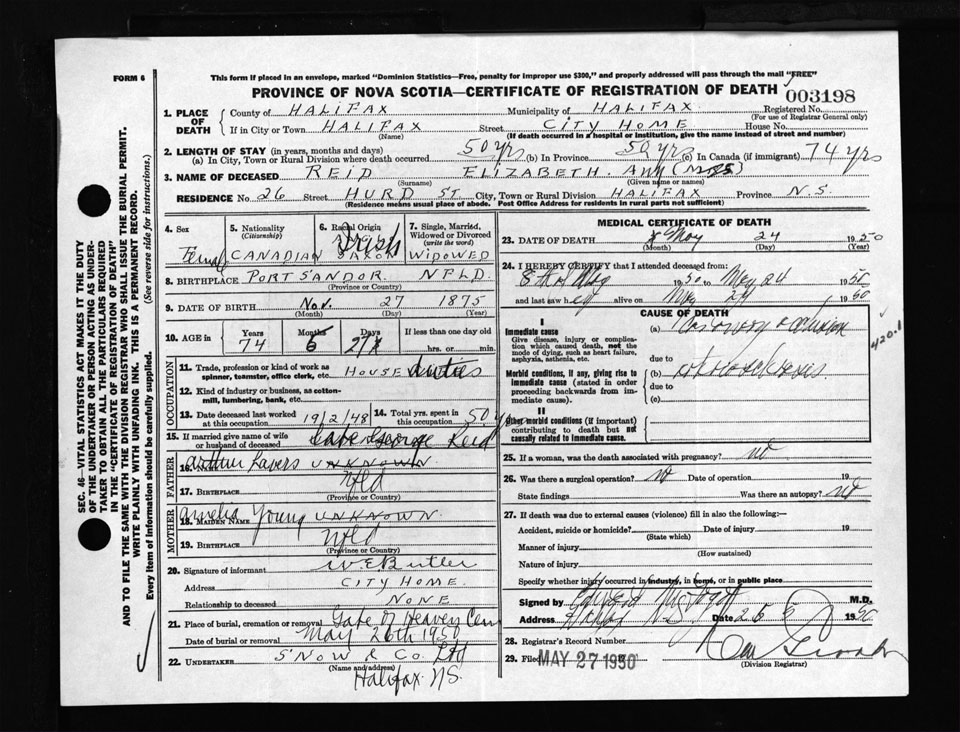 FORM 6
This form if placed in an envelope, marked "Dominion Statistics—Free, penalty for improper use $300," and properly addressed will pass through the mail "FREE"
PROVINCE OF NOVA SCOTIA—CERTIFICATE OF REGISTRATION OF DEATH
003198
1. PLACE OF DEATH
County of HALIFAX Municipality of HALIFAX Registered No.
(For use of Registrar General only)
If in City or Town HALIFAX Street CITY HOME House No.
(Name) (If death occurred in a hospital or institution, give the name instead of street and number)
2. LENGTH OF STAY (in years, months and days)
(a) In City, Town or Rural Division where death occurred 50 yrs (b) In Province 50 yrs (c) In Canada (if immigrant) 74 yrs
3. NAME OF DECEASED REID ELIZABETH. ANN (MRS)
(Surname) (Given name or names)
RESIDENCE No. 26 Street HURD ST. City, Town or Rural Division HALIFAX Province N.S.
(Residence means usual place of abode. Post Office Address for residents in rural parts not sufficient)
4. Sex
Female
5. Nationality
(Citizenship)
CANADIAN
6. Racial Origin
Irish
SAXON
7. Single, Married, Widowed or Divorced
(write the word)
WIDOWED
8. BIRTHPLACE PORT SANDOR. NFLD.
(Province or Country)
9. DATE OF BIRTH Nov. 27 1875
(Month) (Day) (Year)
10. AGE in
Years Months Days If less than one day old
74 27 hrs. or min.
OCCUPATION
11. Trade, profession or kind of work as spinner, teamster, office clerk, etc. HOUSE duties
12. Kind of industry or business, as cotton-mill, lumbering, bank, etc.
13. Date deceased last worked at this occupation 19/2/48 14. Total yrs. spent in this occupation 50 yrs
15. If married give name of wife or husband of deceased Late George Reid
FATHER
16. Name Arthur UNKNOWN
17. Birthplace Nfld
(Province or Country)
MOTHER
18. MAIDEN NAME Amelia Young UNKNOWN.
19. Birthplace Nfld
(Province or Country)
20. Signature of informant W E Butler
Address CITY HOME.
Relationship to deceased NONE
21. Place of burial, cremation or removal Gate of Heaven Cem
Date of burial or removal May 26th 1950
22. UNDERTAKER SNOW & Co. Ltd
(Name and address)
Halifax NS.
MEDICAL CERTIFICATE OF DEATH
23. DATE OF DEATH May 24 1950
(Month) (Day) (Year)
24. I HEREBY CERTIFY that I attended deceased from:
1950 to May 24 1950
and last saw her alive on May 24 1950
CAUSE OF DEATH
I
Immediate cause
Give disease, injury or complication which caused death, not the mode of dying, such as heart failure, asphyxia, asthenia, etc.
(a) Coronary occlusion
due to
420.1
Morbid conditions, if any, giving rise to immediate cause (stated in order proceeding backwards from immediate cause).
(b)
due to
(c)
II
Other morbid conditions (if important) contributing to death but not causally related to immediate cause.
25. If a woman, was the death associated with pregnancy? no
26. Was there a surgical operation? no Date of operation 19
State findings Was there an autopsy? no
27. If death was due to external causes (violence) fill in also the following:—
Accident, suicide or homicide? Date of injury 19
(State which)
Manner of injury
(How sustained)
Nature of injury
Specify whether injury occurred in industry, in home, or in public place
Signed by M.D.
Address Halifax N.S. Date 1950
28. Registrar's Record Number
29. Filed MAY 27 1950
(Division Registrar)
SEC. 46—VITAL STATISTICS ACT MAKES IT THE DUTY
OF THE UNDERTAKER OR PERSON ACTING AS UNDER-
TAKER TO OBTAIN ALL THE PARTICULARS REQUIRED
IN THE "CERTIFICATE OF REGISTRATION OF DEATH"
AND TO FILE THE SAME WITH THE DIVISION REGISTRAR WHO SHALL ISSUE THE BURIAL PERMIT.
WRITE PLAINLY WITH UNFADING INK. THIS IS A PERMANENT RECORD.
Every item of information should be carefully supplied. (See reverse side for instructions.)